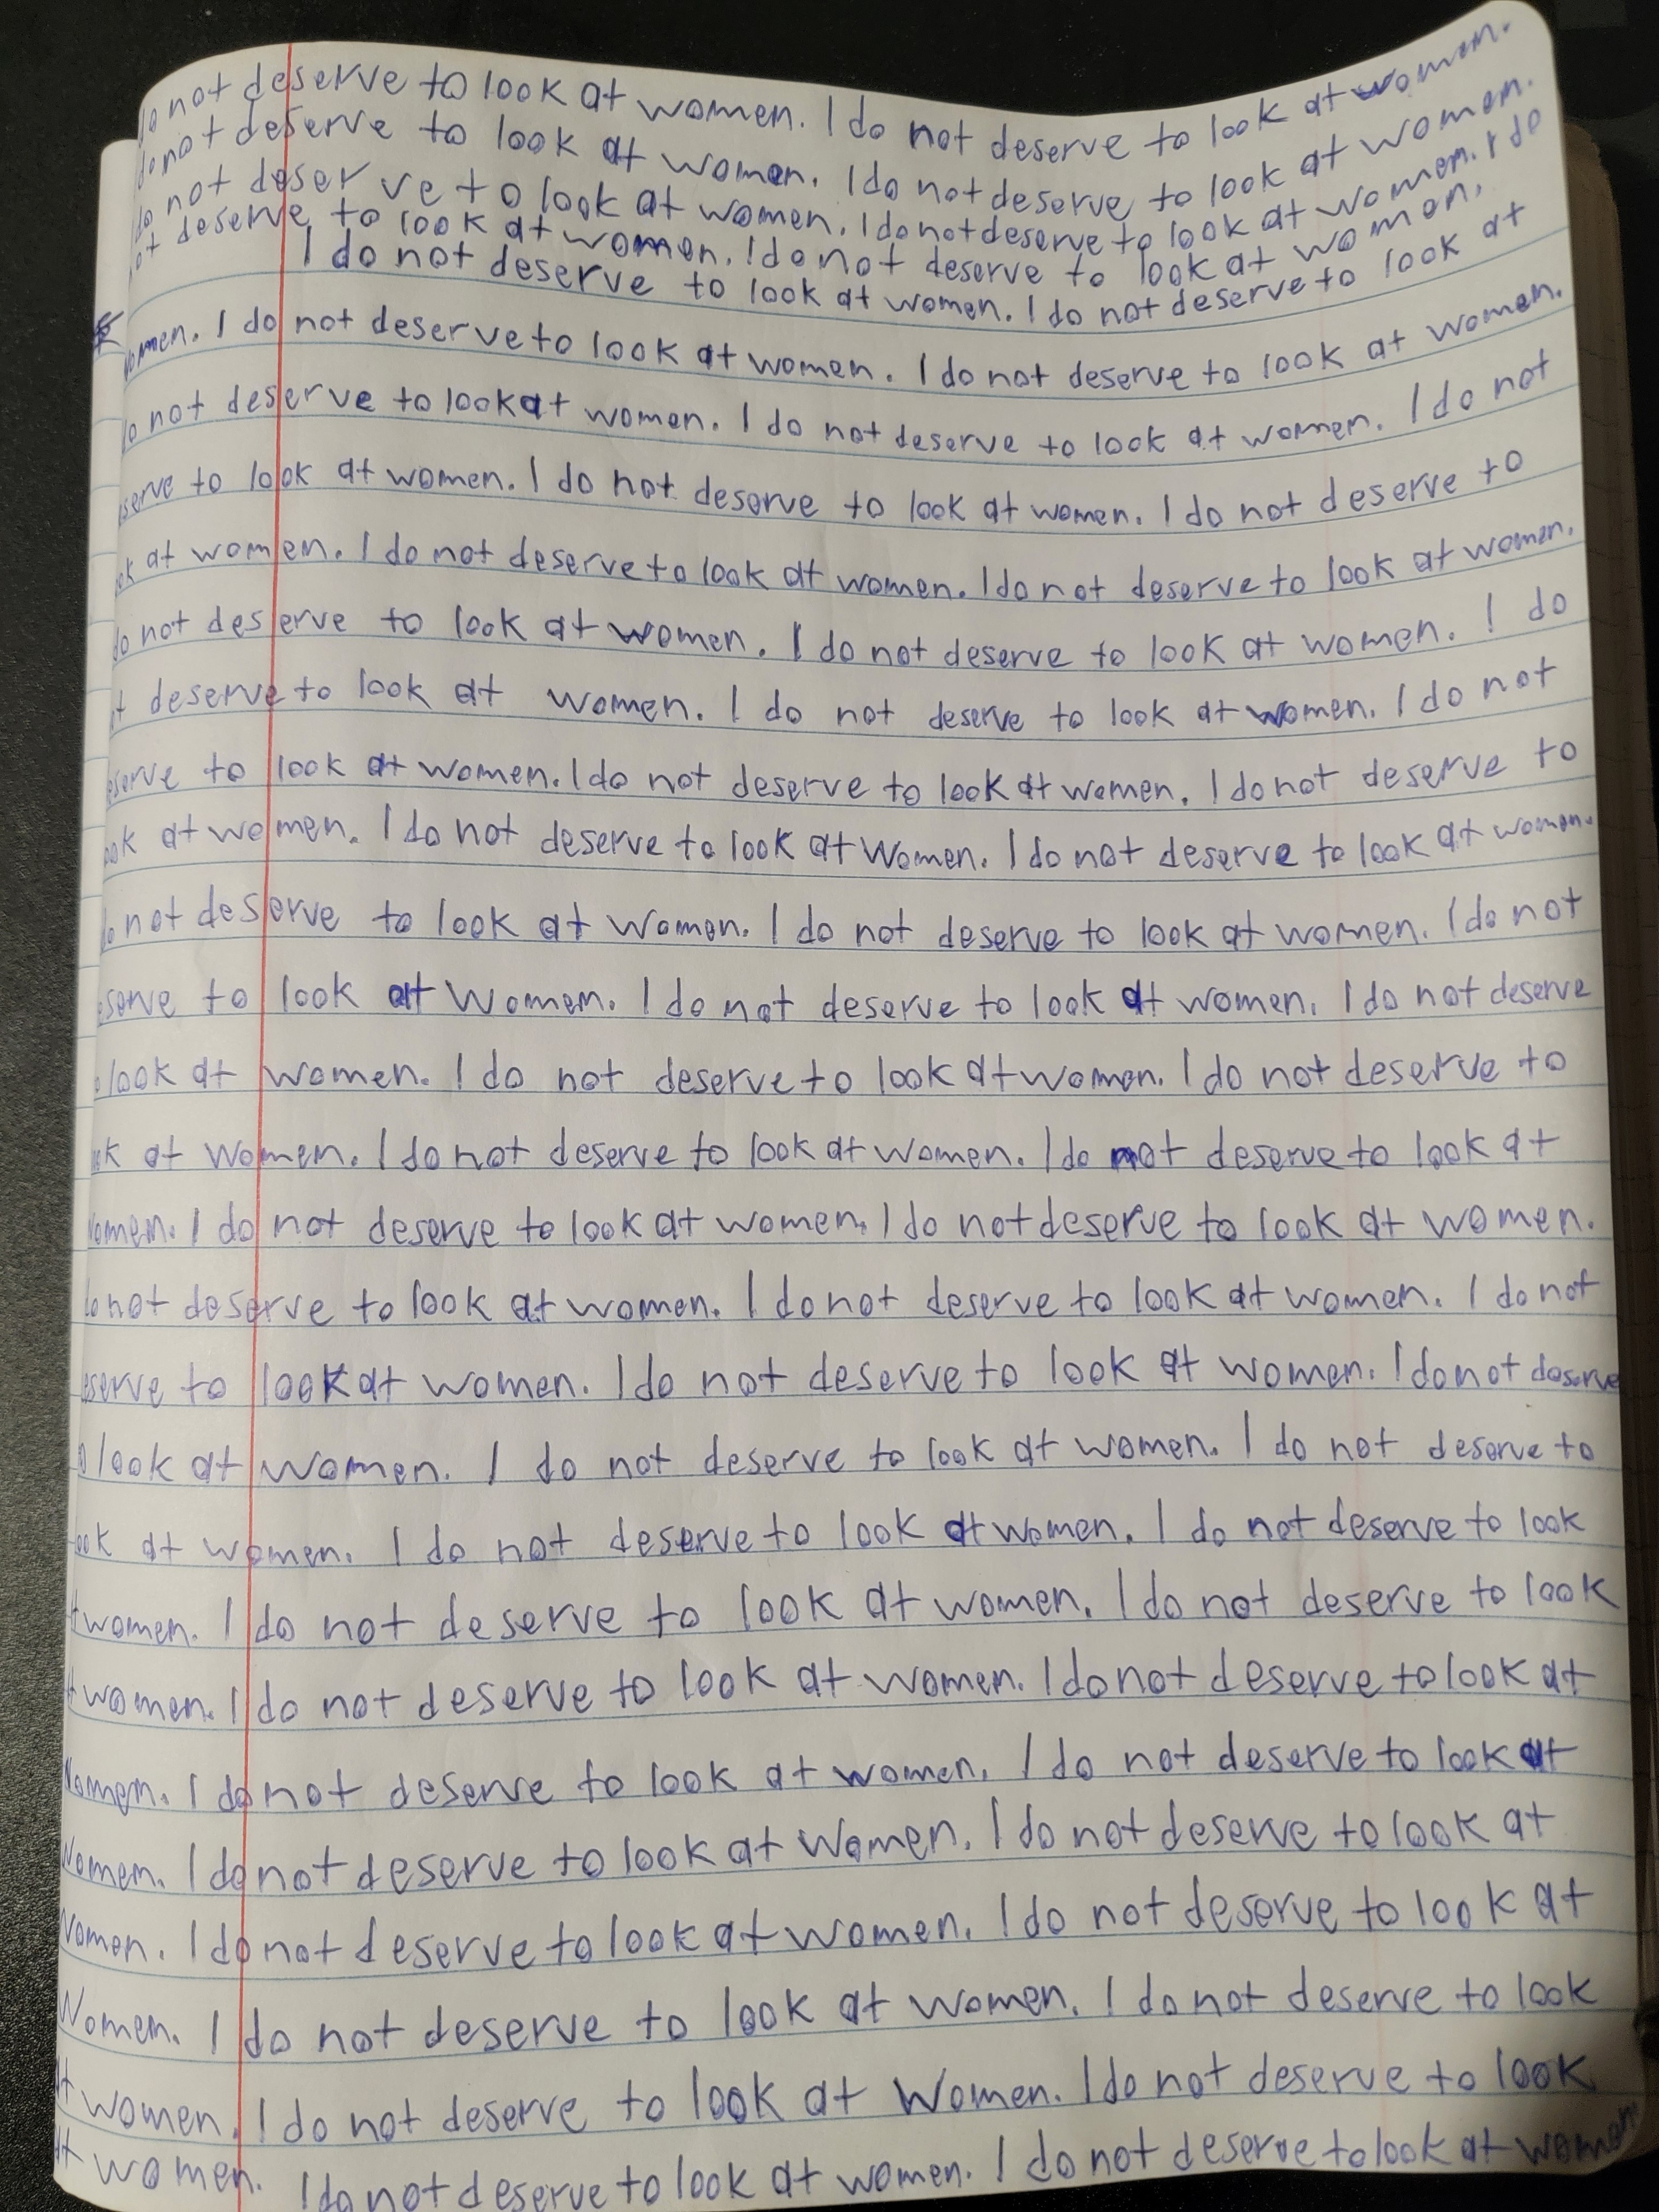 do not deserve to look at women. I do not deserve to look at women.
do not deserve to look at women. I do not deserve to look at women.
do not deserve to look at women. I do not deserve to look at women. I do
not deserve to look at women. I do not deserve to look at women.
I do not deserve to look at women. I do not deserve to look at
women. I do not deserve to look at women. I do not deserve to look at women.
do not deserve to look at women. I do not deserve to look at women. I do not
serve to look at women. I do not deserve to look at women. I do not deserve to
ok at women. I do not deserve to look at women. I do not deserve to look at women.
do not deserve to look at women. I do not deserve to look at women. I do
t deserve to look at women. I do not deserve to look at women. I do not
eserve to look at women. I do not deserve to look at women. I do not deserve to
ook at women. I do not deserve to look at women. I do not deserve to look at women.
do not deserve to look at women. I do not deserve to look at women. I do not
eserve to look at women. I do not deserve to look at women. I do not deserve
o look at women. I do not deserve to look at women. I do not deserve to
ok at women. I do not deserve to look at women. I do not deserve to look at
women. I do not deserve to look at women. I do not deserve to look at women.
do not deserve to look at women. I do not deserve to look at women. I do not
eserve to look at women. I do not deserve to look at women. I do not deserve
o look at women. I do not deserve to look at women. I do not deserve to
ook at women. I do not deserve to look at women. I do not deserve to look
t women. I do not deserve to look at women. I do not deserve to look
t women. I do not deserve to look at women. I do not deserve to look at
women. I do not deserve to look at women. I do not deserve to look at
women. I do not deserve to look at women. I do not deserve to look at
women. I do not deserve to look at women. I do not deserve to look at
Women. I do not deserve to look at women. I do not deserve to look
at women. I do not deserve to look at women. I do not deserve to look
at women. I do not deserve to look at women. I do not deserve to look at women